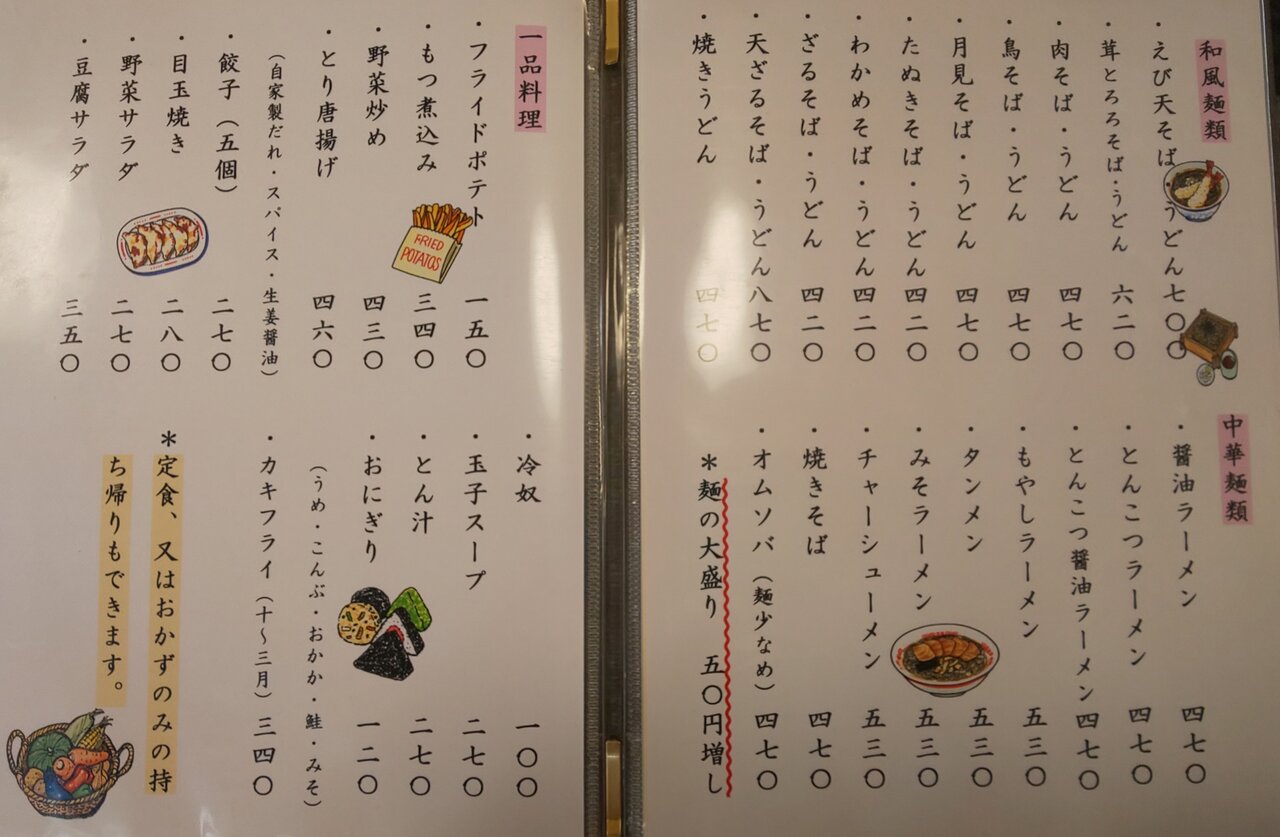 和風麺類
・えび天そば・うどん七〇〇
・茸とろろそば・うどん 六二〇
・肉そば・うどん 四七〇
・鳥そば・うどん 四七〇
・月見そば・うどん 四七〇
・たぬきそば・うどん 四二〇
・わかめそば・うどん 四二〇
・ざるそば・うどん 四二〇
・天ざるそば・うどん八七〇
・焼きうどん 四七〇
中華麺類
・醤油ラーメン 四七〇
・とんこつラーメン 四七〇
・とんこつ醤油ラーメン 四七〇
・もやしラーメン 五三〇
・タンメン 五三〇
・みそラーメン 五三〇
・チャーシューメン 五三〇
・焼きそば 四七〇
・オムソバ（麺少なめ）四七〇
＊麺の大盛り 五〇円増し
一品料理
・フライドポテト 一五〇
・もつ煮込み 三四〇
・野菜炒め 四三〇
・とり唐揚げ 四六〇
（自家製だれ・スパイス・生姜醤油）
・餃子（五個） 二七〇
・目玉焼き 二八〇
・野菜サラダ 二七〇
・豆腐サラダ 三五〇
FRIED
POTATOS
・冷奴 一〇〇
・玉子スープ 二七〇
・とん汁 二七〇
・おにぎり 一二〇
（うめ・こんぶ・おかか・鮭・みそ）
・カキフライ（十〜三月）三四〇
＊定食、又はおかずのみの持
ち帰りもできます。